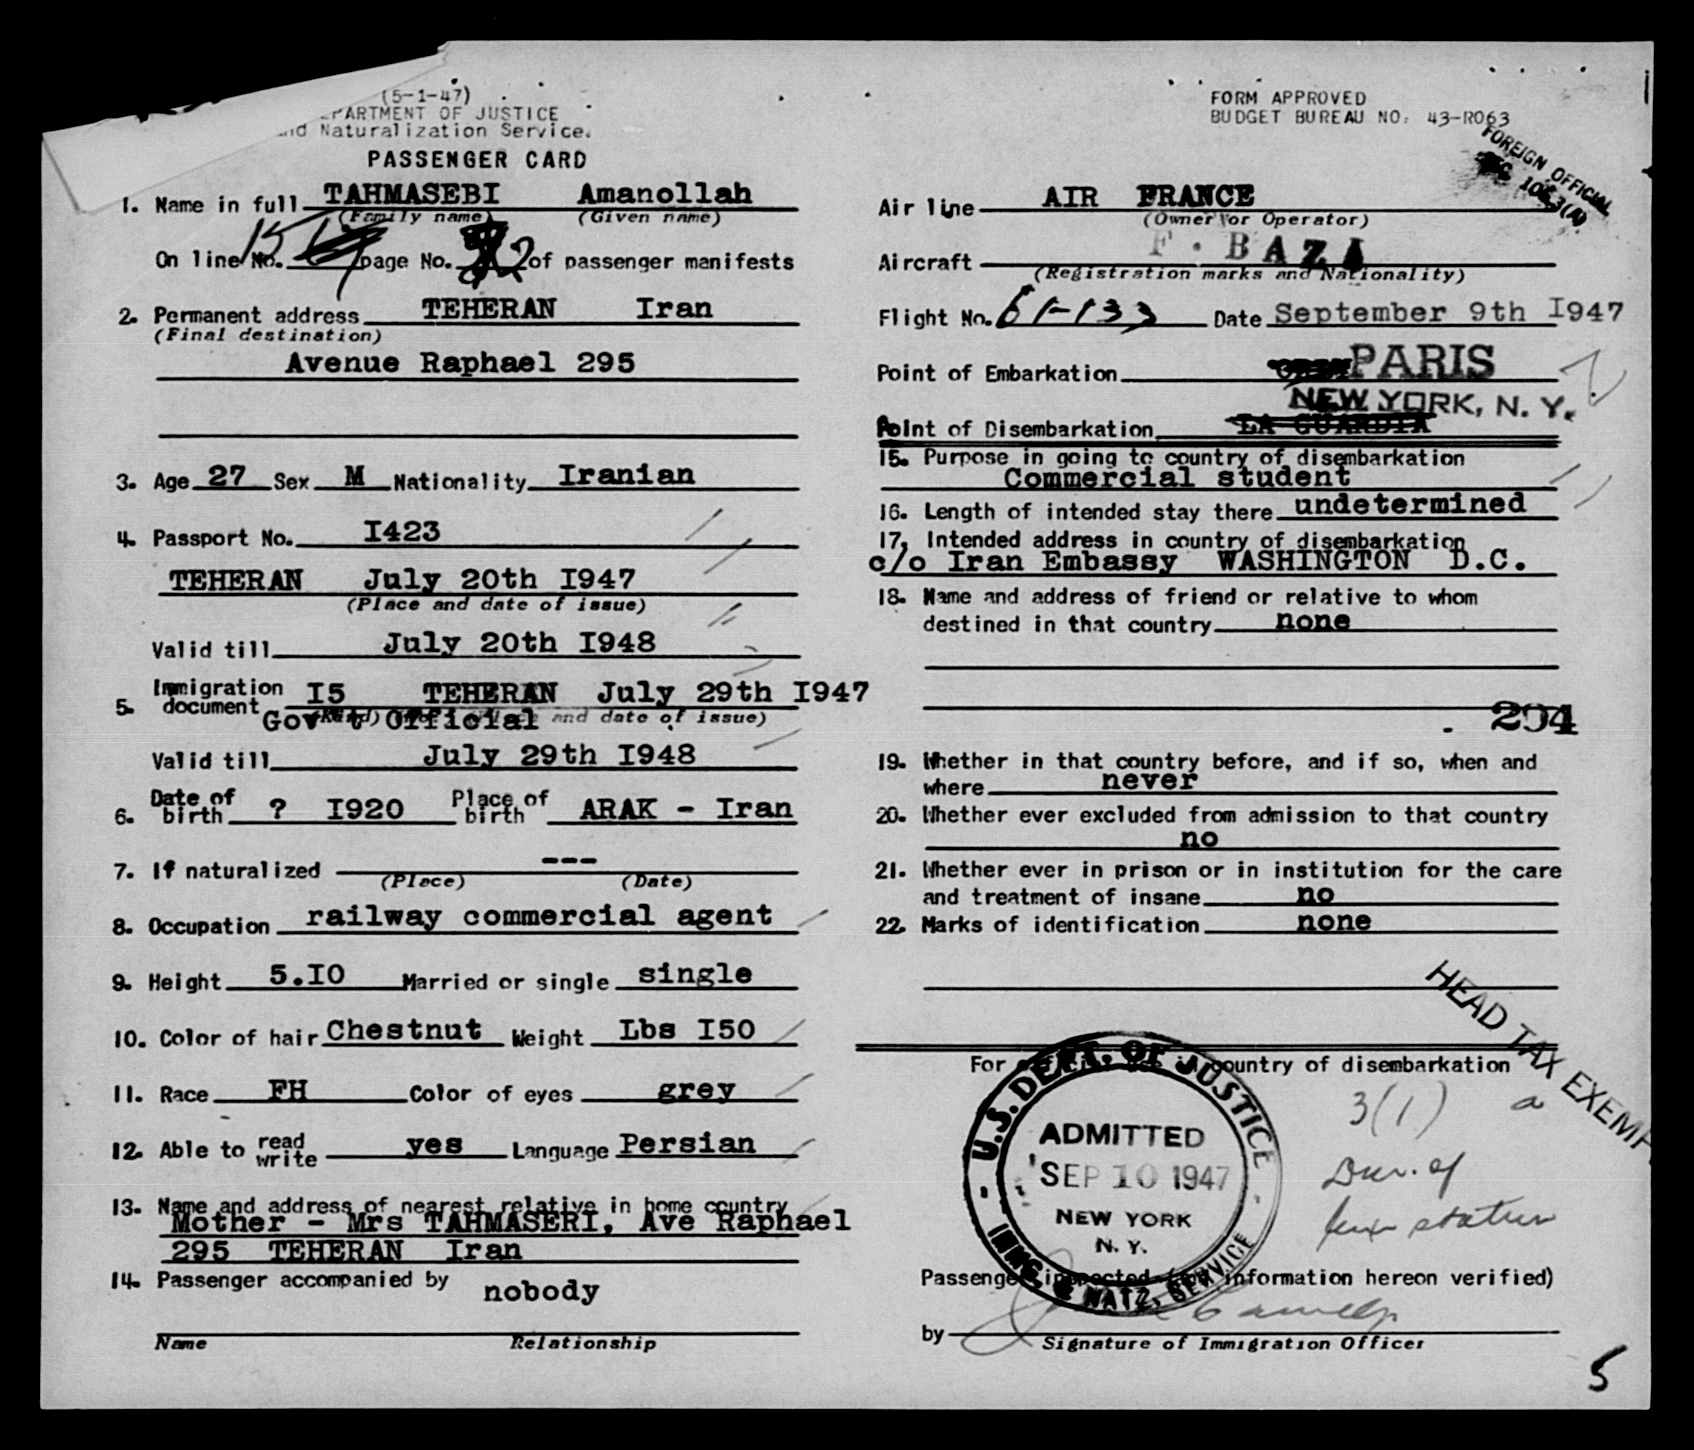 (5-1-47)
DEPARTMENT OF JUSTICE
and Naturalization Service.
PASSENGER CARD
1. Name in full TAHMASEBI Amanollah
(Family name) (Given name)
On line No. 15 page No. 2 of passenger manifests
2. Permanent address TEHERAN Iran
(Final destination)
Avenue Raphael 295
3. Age 27 Sex M Nationality Iranian
4. Passport No. I423
TEHERAN July 20th I947
(Place and date of issue)
Valid till July 20th I948
5. Immigration document I5 TEHERAN July 29th I947
Gov't Official and date of issue)
Valid till July 29th I948
6. Date of birth ? I920 Place of birth ARAK - Iran
7. If naturalized ---
(Place) (Date)
8. Occupation railway commercial agent
9. Height 5.IO Married or single single
10. Color of hair Chestnut Weight Lbs I50
11. Race FH Color of eyes grey
12. Able to read write yes Language Persian
13. Name and address of nearest relative in home country
Mother - Mrs TAHMASERI, Ave Raphael
295 TEHERAN Iran
14. Passenger accompanied by nobody
Name Relationship
FORM APPROVED
BUDGET BUREAU NO. 43-R063
FOREIGN OFFICIAL
Air line AIR FRANCE
(Owner or Operator)
Aircraft F. BAZ
(Registration marks and Nationality)
Flight No. 61-133 Date September 9th I947
Point of Embarkation PARIS
NEW YORK, N. Y.
Point of Disembarkation LA GUARDIA
15. Purpose in going to country of disembarkation
Commercial student
16. Length of intended stay there undetermined
17. Intended address in country of disembarkation
c/o Iran Embassy WASHINGTON D.C.
18. Name and address of friend or relative to whom
destined in that country none
204
19. Whether in that country before, and if so, when and
where never
20. Whether ever excluded from admission to that country
no
21. Whether ever in prison or in institution for the care
and treatment of insane no
22. Marks of identification none
HEAD TAX EXEMP
For official use in country of disembarkation
U.S. DEPT. OF JUSTICE
ADMITTED
SEP 10 1947
NEW YORK
N. Y.
IMMG. & NATZ. SERVICE
3(1) a
Dur. of
status
Passenger inspected (and information hereon verified)
by
Signature of Immigration Officer
5